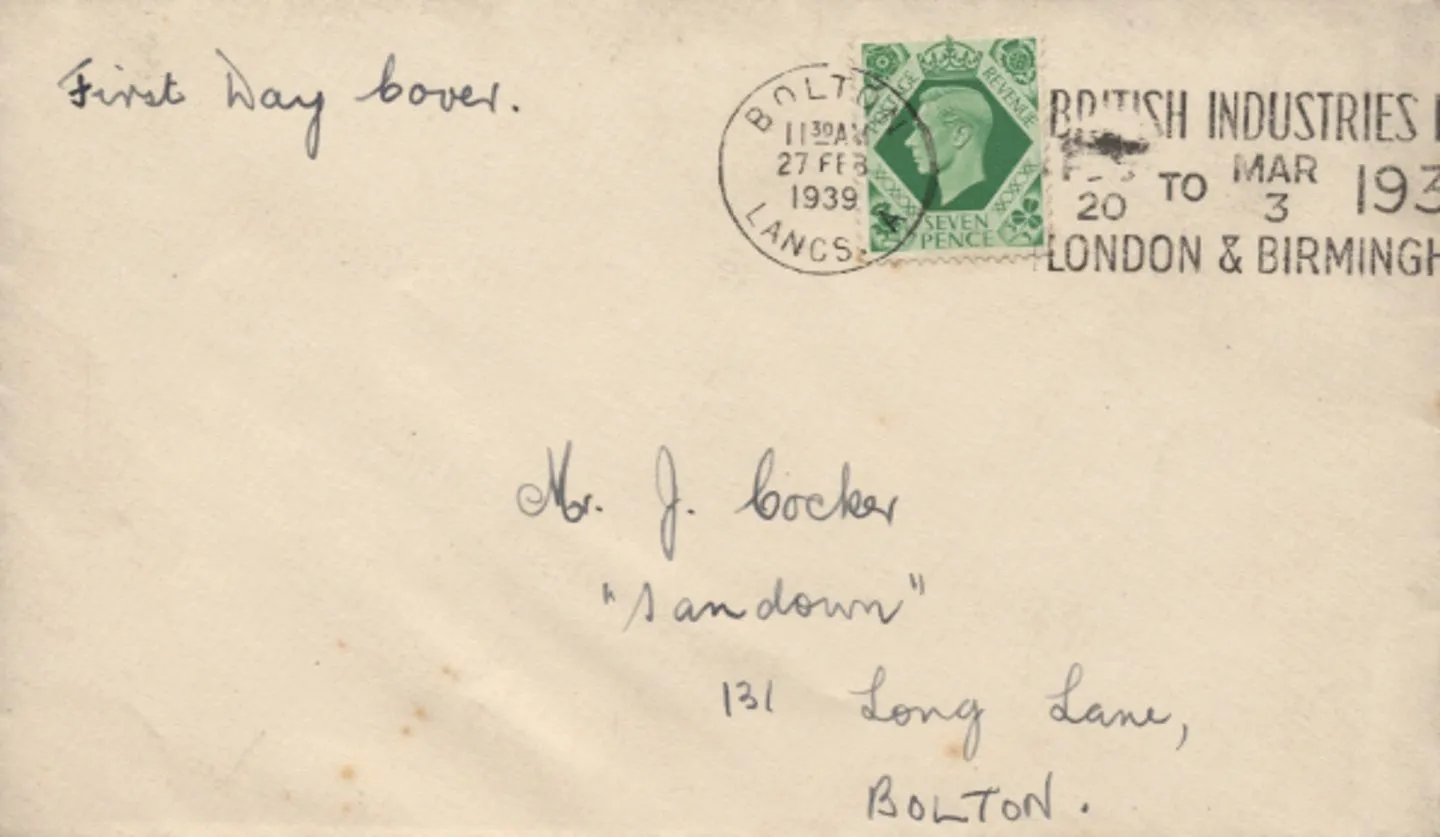 First Day Cover.
BOLTON
11 30 AM
27 FEB
1939
LANCS. A
POSTAGE REVENUE
SEVEN
PENCE
BRITISH INDUSTRIES
20 TO MAR 3 193
LONDON & BIRMINGH
Mr. J. Cocker
"Sandown"
131 Long Lane,
BOLTON.